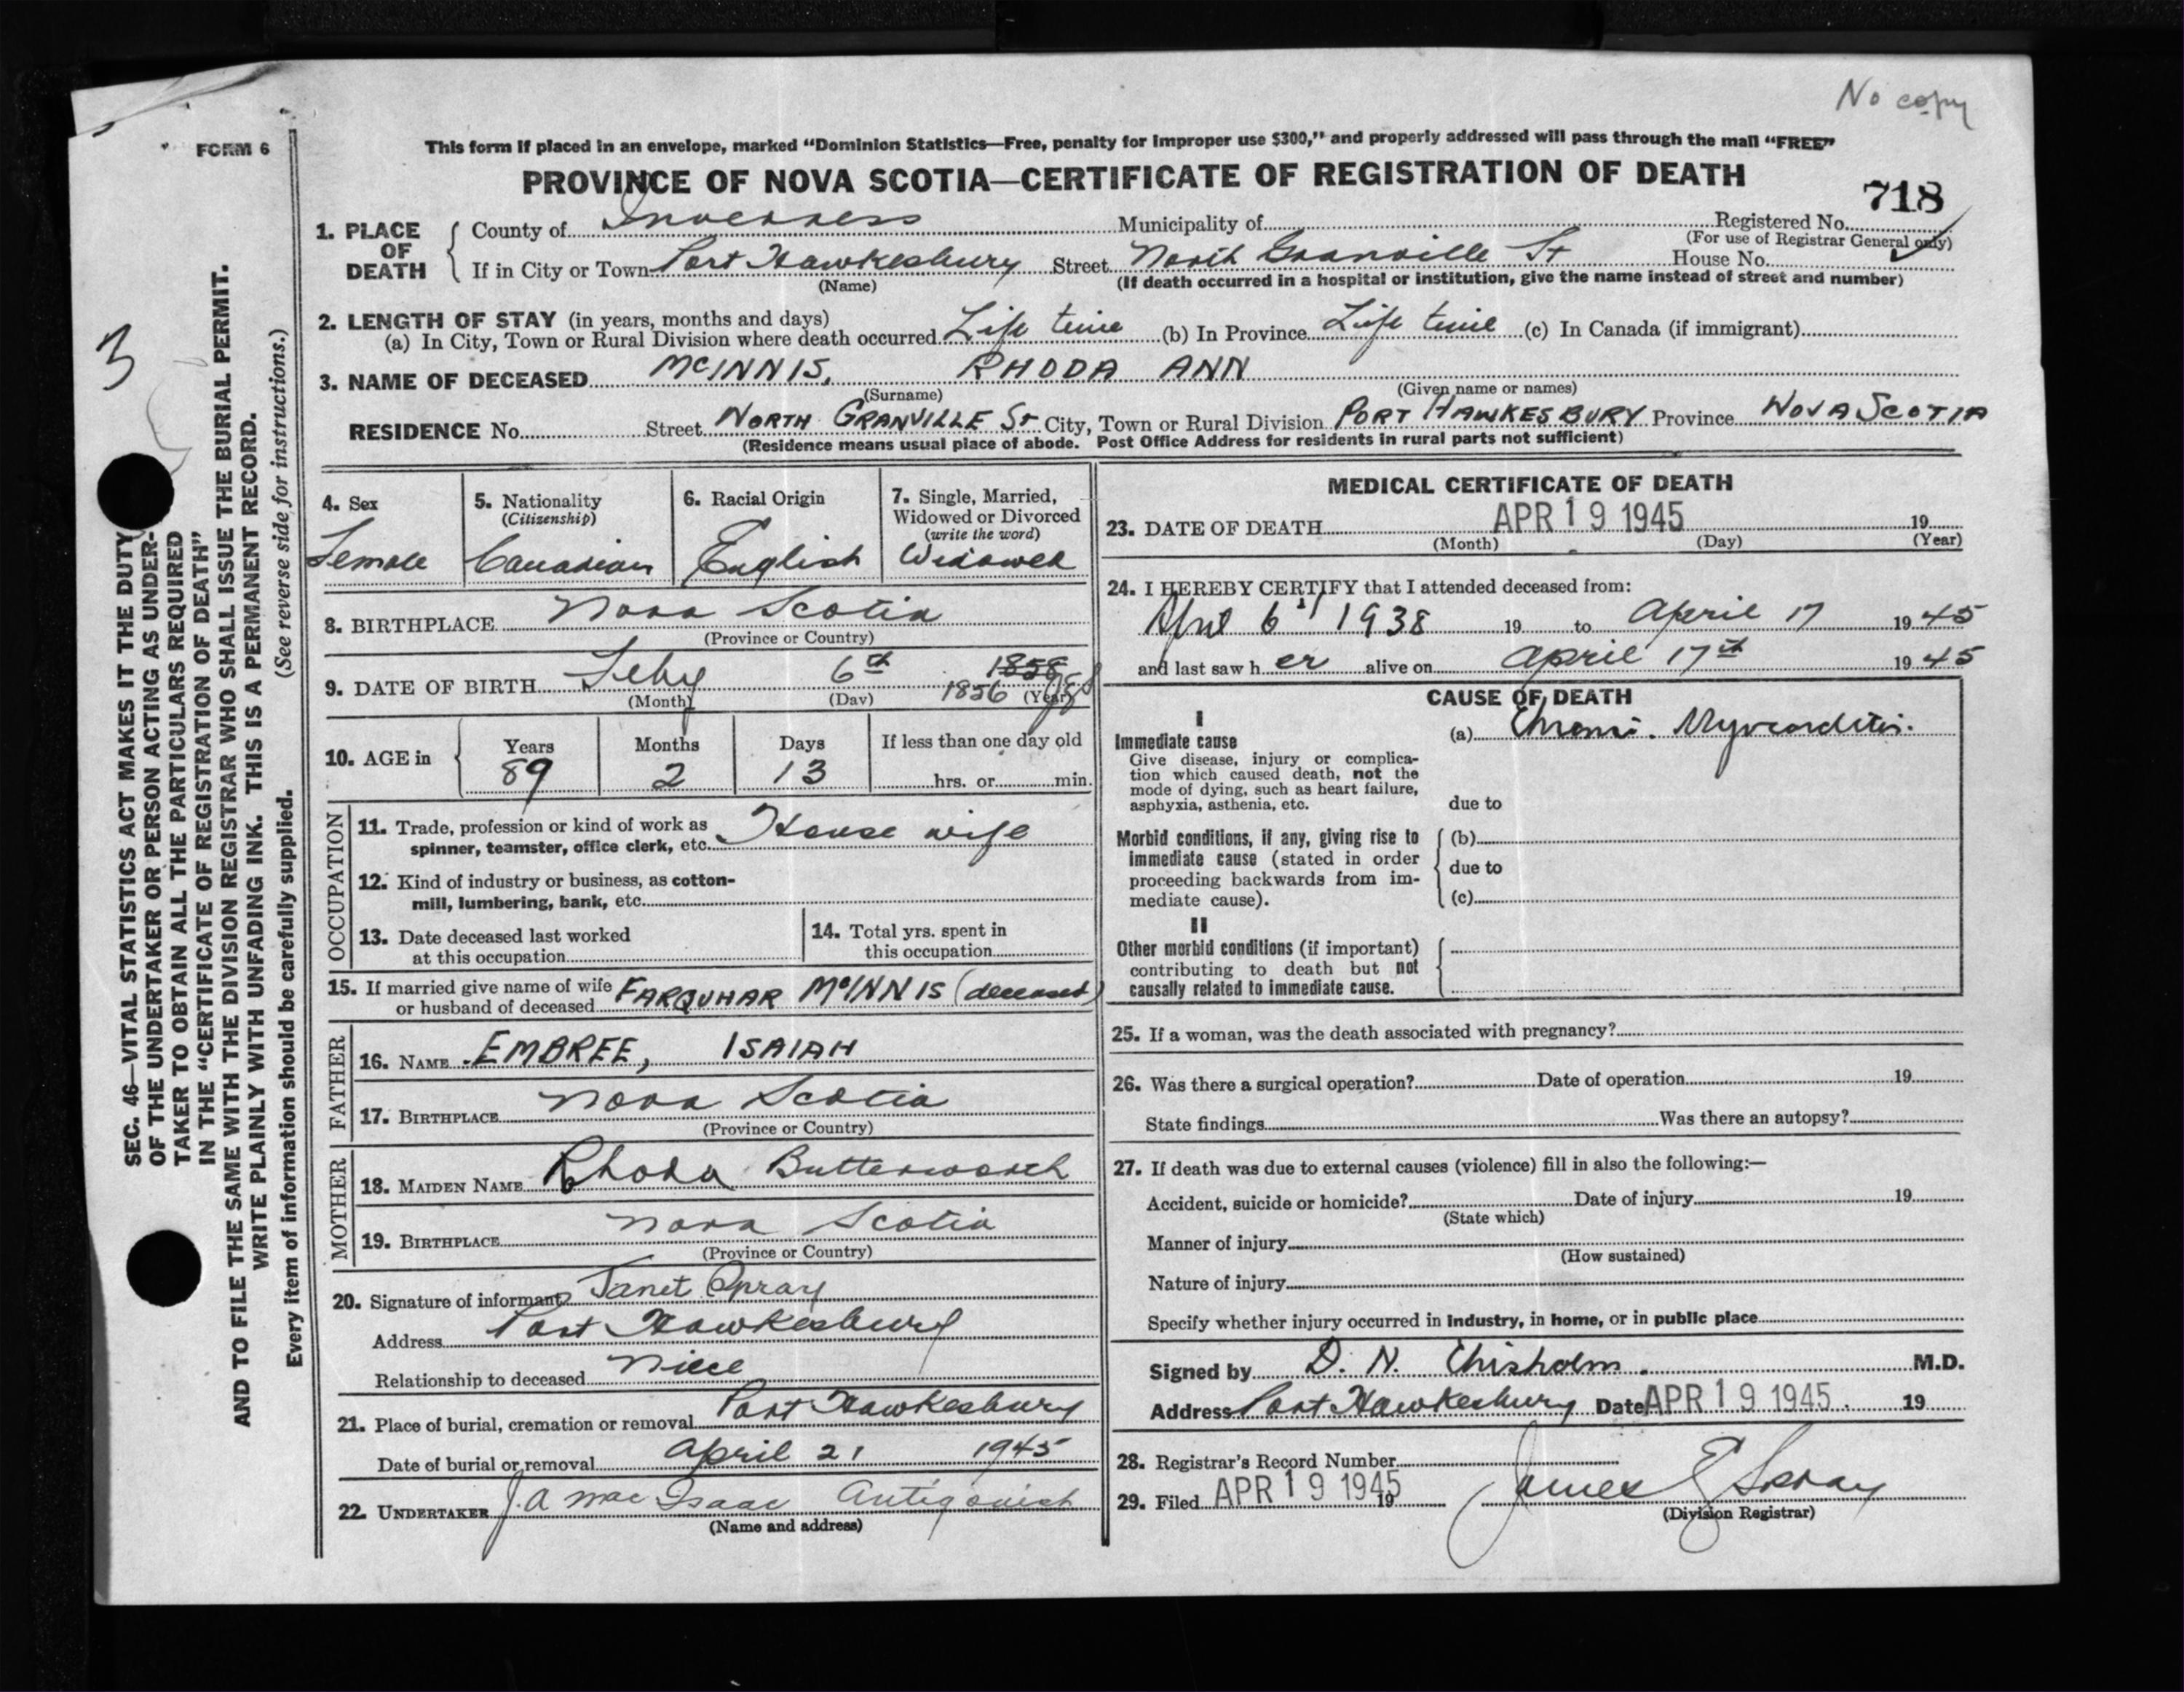 No copy
FORM 6
This form if placed in an envelope, marked "Dominion Statistics—Free, penalty for improper use $300," and properly addressed will pass through the mail "FREE"
PROVINCE OF NOVA SCOTIA—CERTIFICATE OF REGISTRATION OF DEATH
718
1. PLACE OF DEATH
County of Inverness Municipality of Registered No.
(For use of Registrar General only)
If in City or Town Port Hawkesbury Street North Granville St House No.
(Name) (If death occurred in a hospital or institution, give the name instead of street and number)
2. LENGTH OF STAY (in years, months and days)
(a) In City, Town or Rural Division where death occurred Life time (b) In Province Life time (c) In Canada (if immigrant)
3. NAME OF DECEASED McINNIS, RHODA ANN
(Surname) (Given name or names)
RESIDENCE No. Street NORTH GRANVILLE St City, Town or Rural Division PORT HAWKESBURY Province NOVA SCOTIA
(Residence means usual place of abode. Post Office Address for residents in rural parts not sufficient)
3
SEC. 46—VITAL STATISTICS ACT MAKES IT THE DUTY
OF THE UNDERTAKER OR PERSON ACTING AS UNDER-
TAKER TO OBTAIN ALL THE PARTICULARS REQUIRED
IN THE "CERTIFICATE OF REGISTRATION OF DEATH"
AND TO FILE THE SAME WITH THE DIVISION REGISTRAR WHO SHALL ISSUE THE BURIAL PERMIT.
WRITE PLAINLY WITH UNFADING INK. THIS IS A PERMANENT RECORD.
Every item of information should be carefully supplied. (See reverse side for instructions.)
4. Sex
Female
5. Nationality
(Citizenship)
Canadian
6. Racial Origin
English
7. Single, Married,
Widowed or Divorced
(write the word)
Widowed
8. BIRTHPLACE Nova Scotia
(Province or Country)
9. DATE OF BIRTH Feby 6th 1858
1856
(Month) (Day) (Year)
10. AGE in
Years Months Days If less than one day old
89 2 13 hrs. or min.
OCCUPATION
11. Trade, profession or kind of work as
spinner, teamster, office clerk, etc. House wife
12. Kind of industry or business, as cotton-
mill, lumbering, bank, etc.
13. Date deceased last worked
at this occupation
14. Total yrs. spent in
this occupation
15. If married give name of wife
or husband of deceased FARQUHAR McINNIS (deceased)
FATHER
16. NAME EMBREE, ISAIAH
17. BIRTHPLACE Nova Scotia
(Province or Country)
MOTHER
18. MAIDEN NAME Rhoda Butterworth
19. BIRTHPLACE Nova Scotia
(Province or Country)
20. Signature of informant Janet Spray
Address Port Hawkesbury
Relationship to deceased Niece
21. Place of burial, cremation or removal Port Hawkesbury
Date of burial or removal April 21 1945
22. UNDERTAKER J. A MacIsaac Antigonish
(Name and address)
MEDICAL CERTIFICATE OF DEATH
23. DATE OF DEATH APR 19 1945 19
(Month) (Day) (Year)
24. I HEREBY CERTIFY that I attended deceased from:
April 6th 1938 19 to April 17 1945
and last saw her alive on April 17th 1945
CAUSE OF DEATH
I
Immediate cause
Give disease, injury or complica-
tion which caused death, not the
mode of dying, such as heart failure,
asphyxia, asthenia, etc.
(a) Chronic Myocarditis.
due to
Morbid conditions, if any, giving rise to
immediate cause (stated in order
proceeding backwards from im-
mediate cause).
(b)
due to
(c)
II
Other morbid conditions (if important)
contributing to death but not
causally related to immediate cause.
25. If a woman, was the death associated with pregnancy?
26. Was there a surgical operation? Date of operation 19
State findings Was there an autopsy?
27. If death was due to external causes (violence) fill in also the following:—
Accident, suicide or homicide? Date of injury 19
(State which)
Manner of injury
(How sustained)
Nature of injury
Specify whether injury occurred in industry, in home, or in public place
Signed by D. N. Chisholm. M.D.
Address Port Hawkesbury Date APR 19 1945. 19
28. Registrar's Record Number
29. Filed APR 19 1945 19 James E Spray
(Division Registrar)